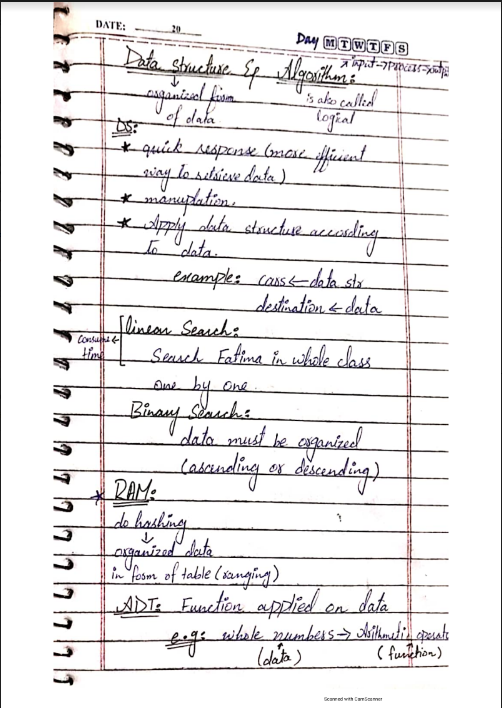 DATE: 20
Day M T W T F S
* input → process → outp
Data structure & Algorithm:
organized form is also called
of data logical
DS:
* quick response (more efficient
way to retrieve data)
* manuplation.
* Apply data structure according
to data.
example: cars ← data str
destination ← data
linear Search:
consume time
Search Fatima in whole class
one by one.
Binary Search:
data must be organized
(ascending or descending)
* RAM:
do hashing
organized data
in form of table (ranging)
ADT: Function applied on data
e.g: whole numbers → Arithmetic operat
(data) (function)
Scanned with CamScanner